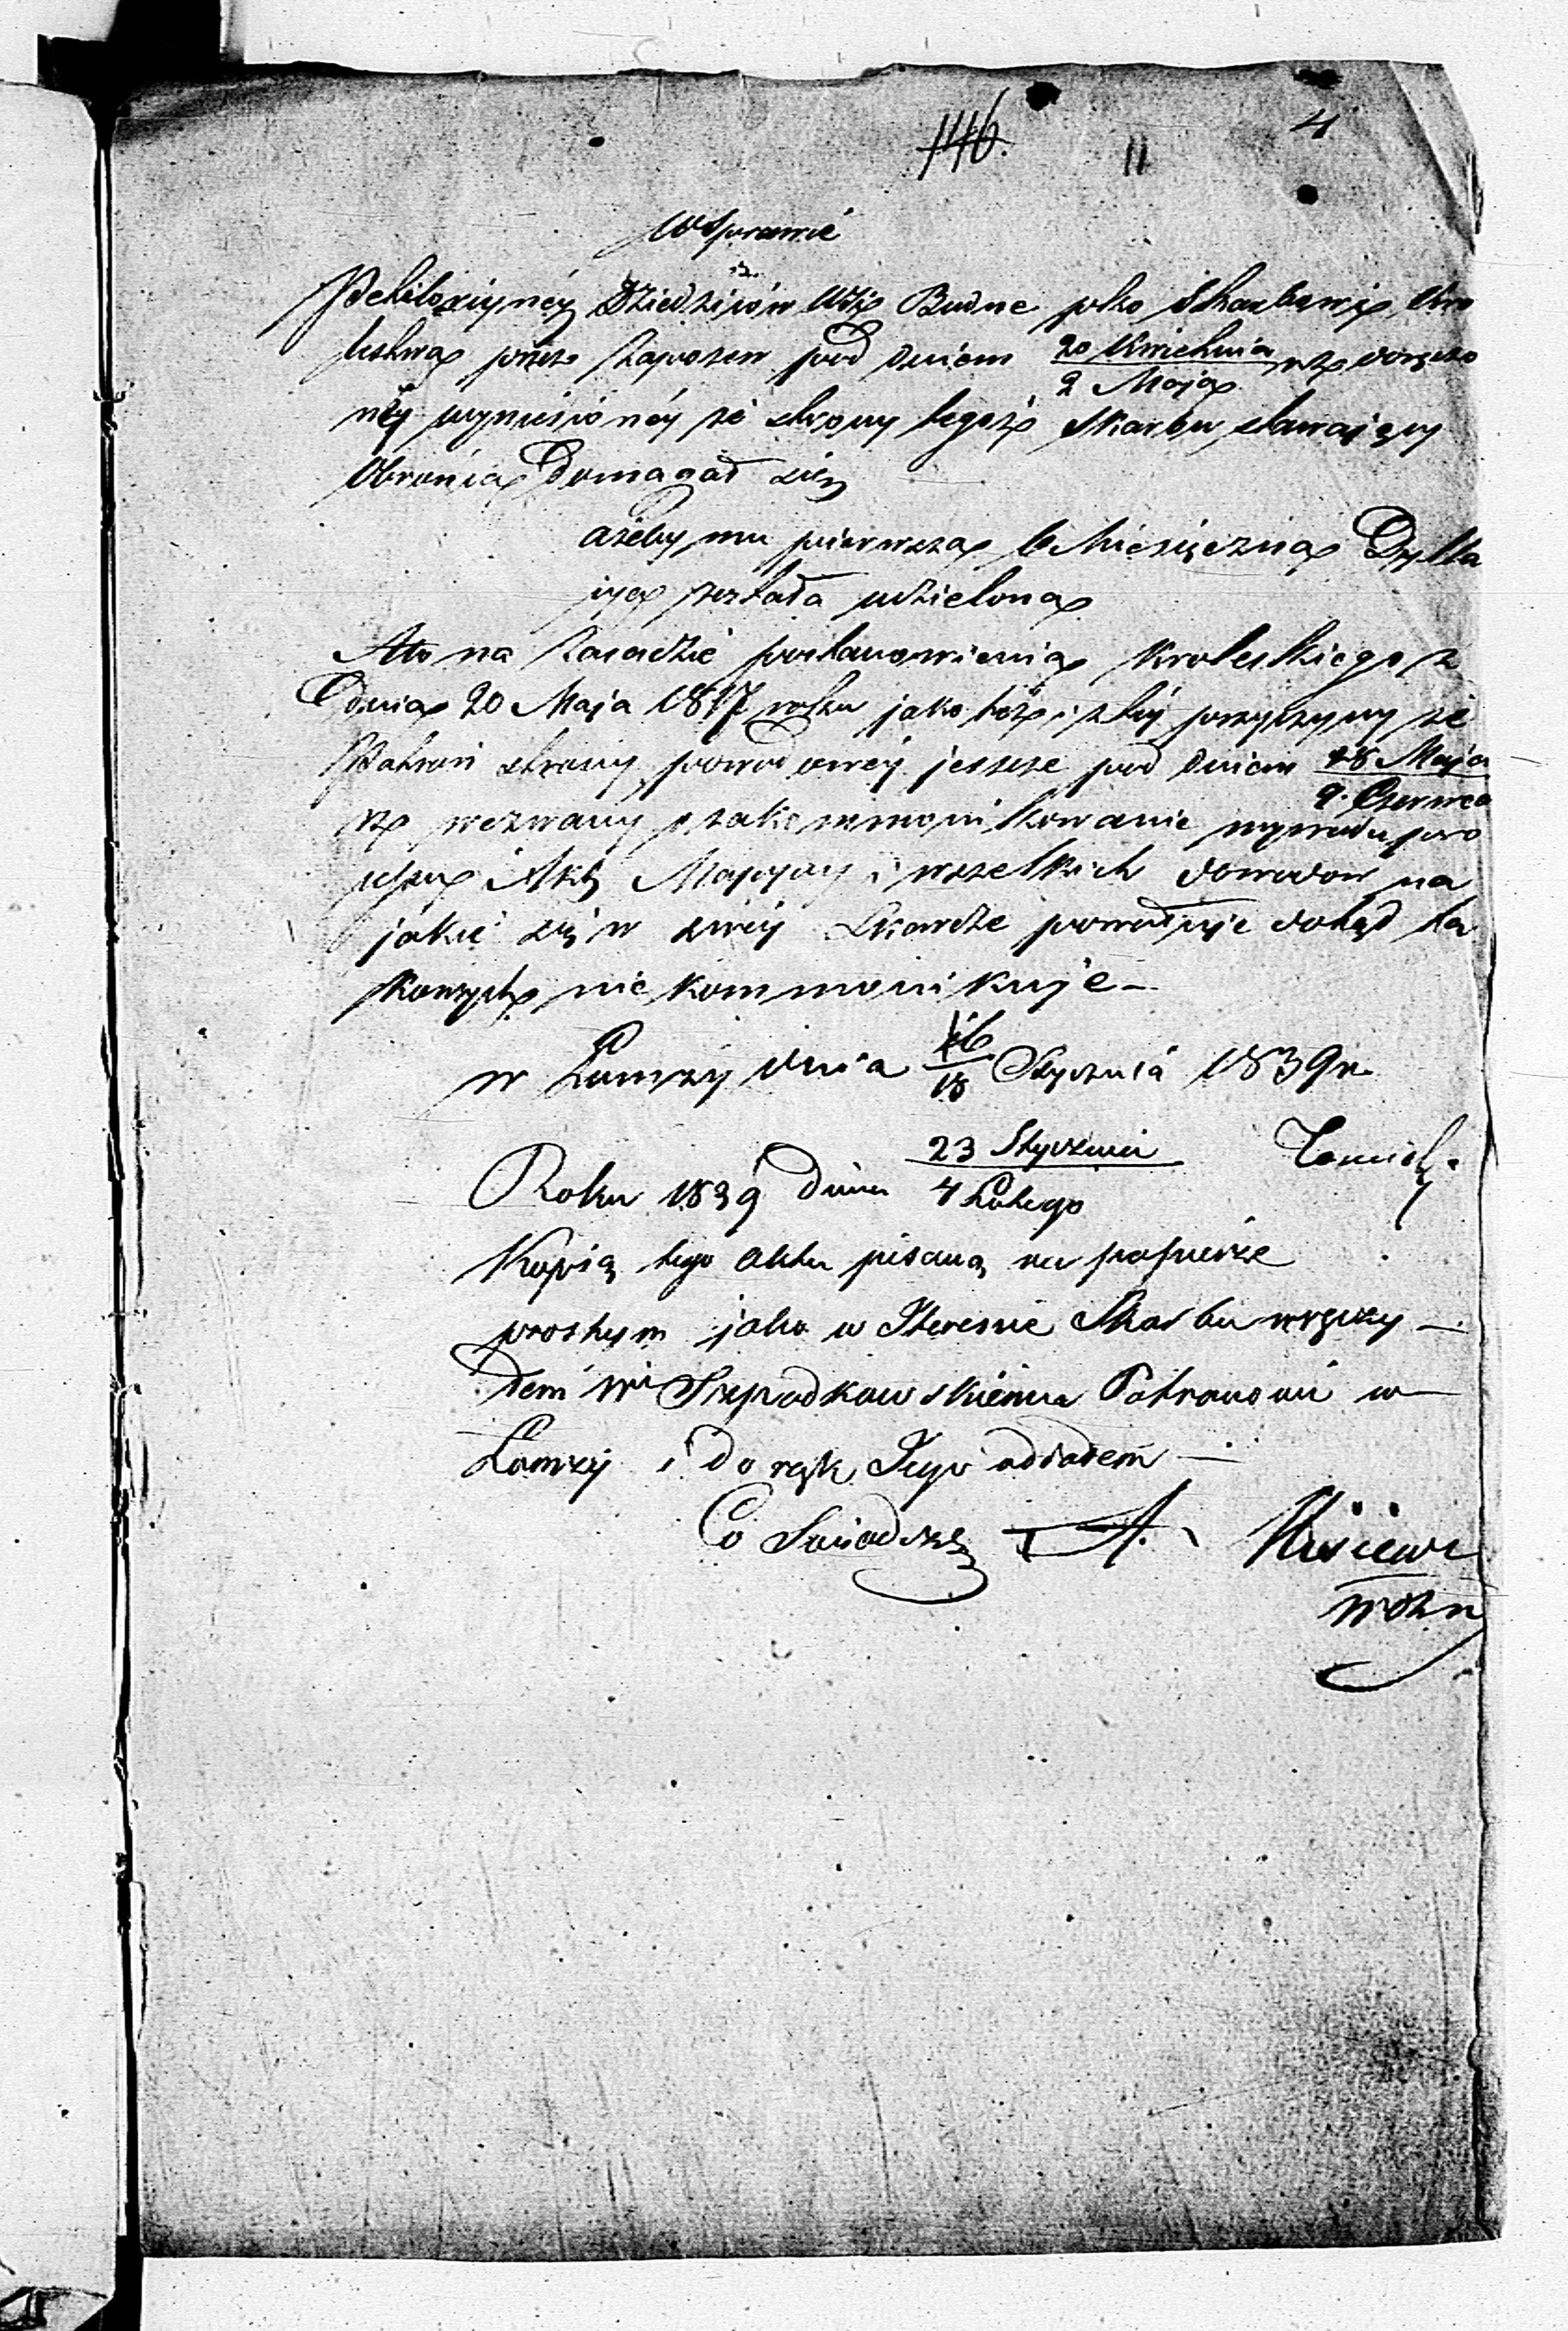 146.
11
4
w Sprawie
Petitoryjnéy Dziedziców Wsi Budne plko Skarbowi Kró
lestwa przez Zapozew pod dniem 20 Kwietnia / 2 Maja rz doręczo
néy wyniesionéy ze strony tegoż Skarbu stawający
Obrońca Domagał się
ażeby mu pierwsza 6 Miesięczna Dylla
cya została udzielona
A to na Zasadzie postanowienia Królewskiego z
Dnia 20 Maja 1817 roku jako też i z téy przyczyny że
Patron strony powodowéy jeszcze pod dniem 28 Maja / 9 Czerwca
rz wezwany o zakommonikowanie wywodu pro
cessu Akt Mappy i wszelkich dowodów na
jakie się w swéy Skardze powołuje dotąd ta
kowych nie kommonikuje –
w Łomży dnia 16/18 Stycznia 1839 r.
Roku 1839 dnia 23 Stycznia / 4 Lutego
Kopią tego Aktu pisaną na papierze
prostym jako w Interesie Skarbu wręczy –
łem Wu Szepradkowskiemu Patronowi w –
Łomży i do rąk Jego oddałem –
Co Świadczę A.